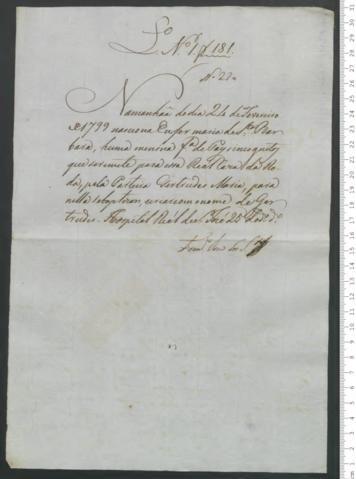 Lº
Nº 1, f 181.
Nº 22
Na manhãa do dia 24 de Fevereiro
de 1799 nasceu na Enfermaria de Stª Bar-
bara, huma menina fª de Pays incognitos,
que se remete para essa Real Caza da Ro-
da, pela Parteira Gertrudes Maria, para
nella se baptizar, com o nome de Ger-
trudes. Hospital Real de S. José 25 do dº